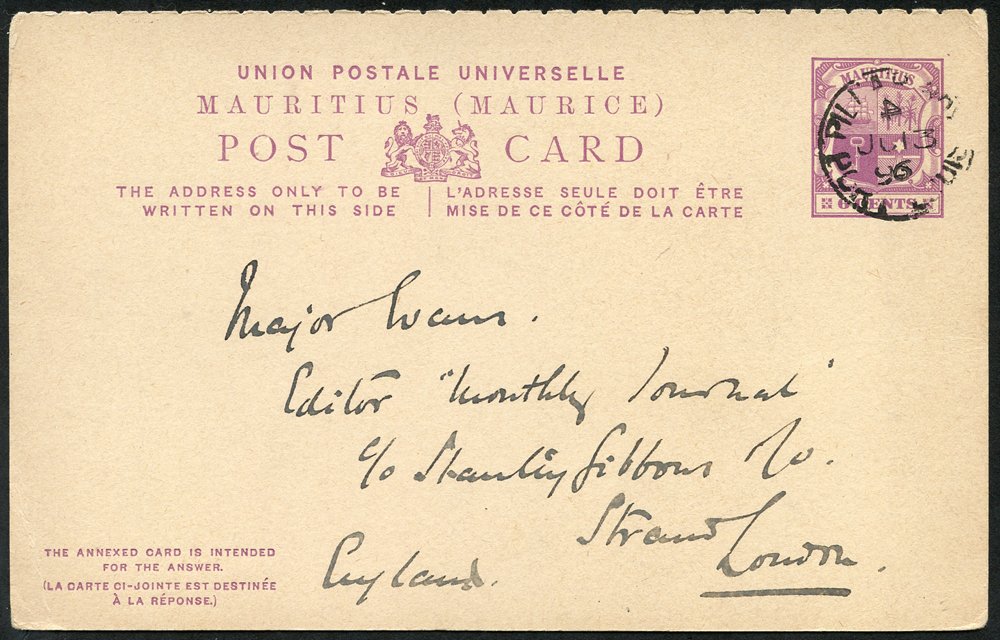 UNION POSTALE UNIVERSELLE
MAURITIUS (MAURICE)
POST CARD
THE ADDRESS ONLY TO BE
WRITTEN ON THIS SIDE
L'ADRESSE SEULE DOIT ÊTRE
MISE DE CE CÔTÉ DE LA CARTE
MAURITIUS
4
JU 13
96
6 CENTS
Major Evans.
Editor "Monthly Journal"
c/o Stanley Gibbons
Strand
London.
England.
THE ANNEXED CARD IS INTENDED
FOR THE ANSWER.
(LA CARTE CI-JOINTE EST DESTINÉE
À LA RÉPONSE.)